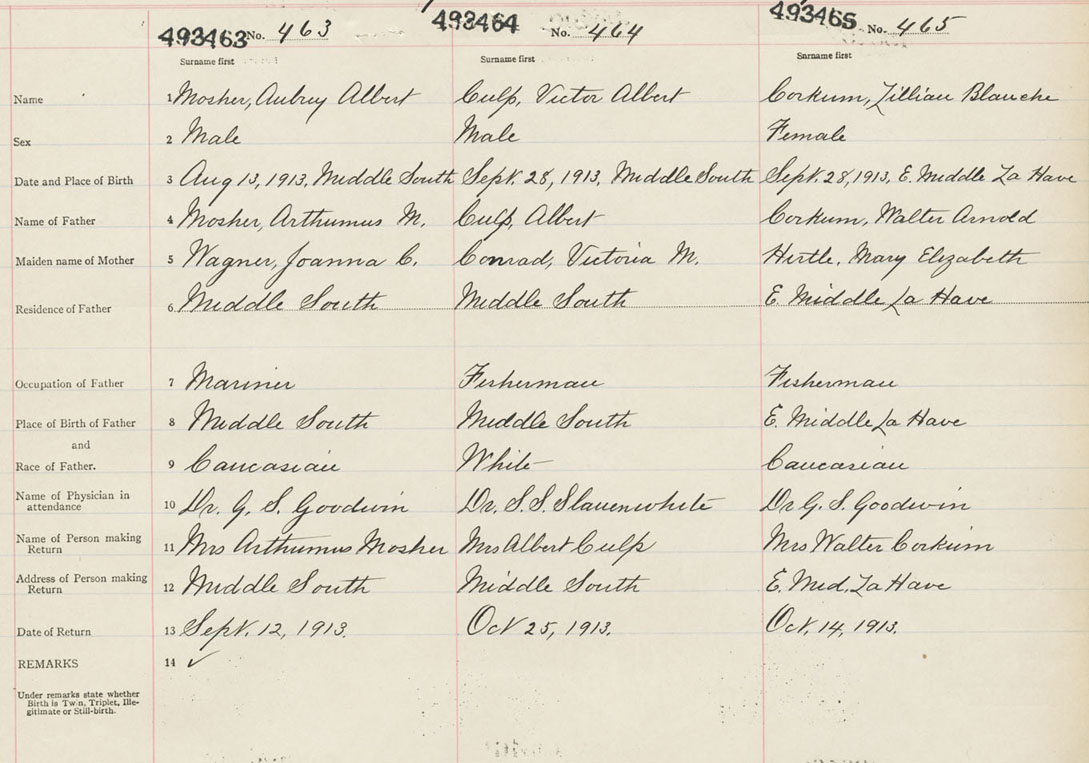 493463 No. 463 493464 No. 464 493465 No. 465
Surname first Surname first Surname first
Name 1 Mosher, Aubrey Albert Culp, Victor Albert Corkum, Lillian Blanche
Sex 2 Male Male Female
Date and Place of Birth 3 Aug 13, 1913, Middle South Sept. 28, 1913, Middle South Sept. 28, 1913, E. Middle La Have
Name of Father 4 Mosher, Arthumus M. Culp, Albert Corkum, Walter Arnold
Maiden name of Mother 5 Wagner, Joanna C. Conrad, Victoria M. Hirtle, Mary Elizabeth
Residence of Father 6 Middle South Middle South E. Middle La Have
Occupation of Father 7 Mariner Fisherman Fisherman
Place of Birth of Father 8 Middle South Middle South E. Middle La Have
and
Race of Father. 9 Caucasian White Caucasian
Name of Physician in
attendance 10 Dr. G. S. Goodwin Dr. S. S. Slauenwhite Dr G. S. Goodwin
Name of Person making
Return 11 Mrs Arthumus Mosher Mrs Albert Culp Mrs Walter Corkum
Address of Person making
Return 12 Middle South Middle South E. Mid. La Have
Date of Return 13 Sept. 12, 1913. Oct 25, 1913. Oct. 14, 1913.
REMARKS 14 ✓
Under remarks state whether
Birth is Twin, Triplet, Ille-
gitimate or Still-birth.